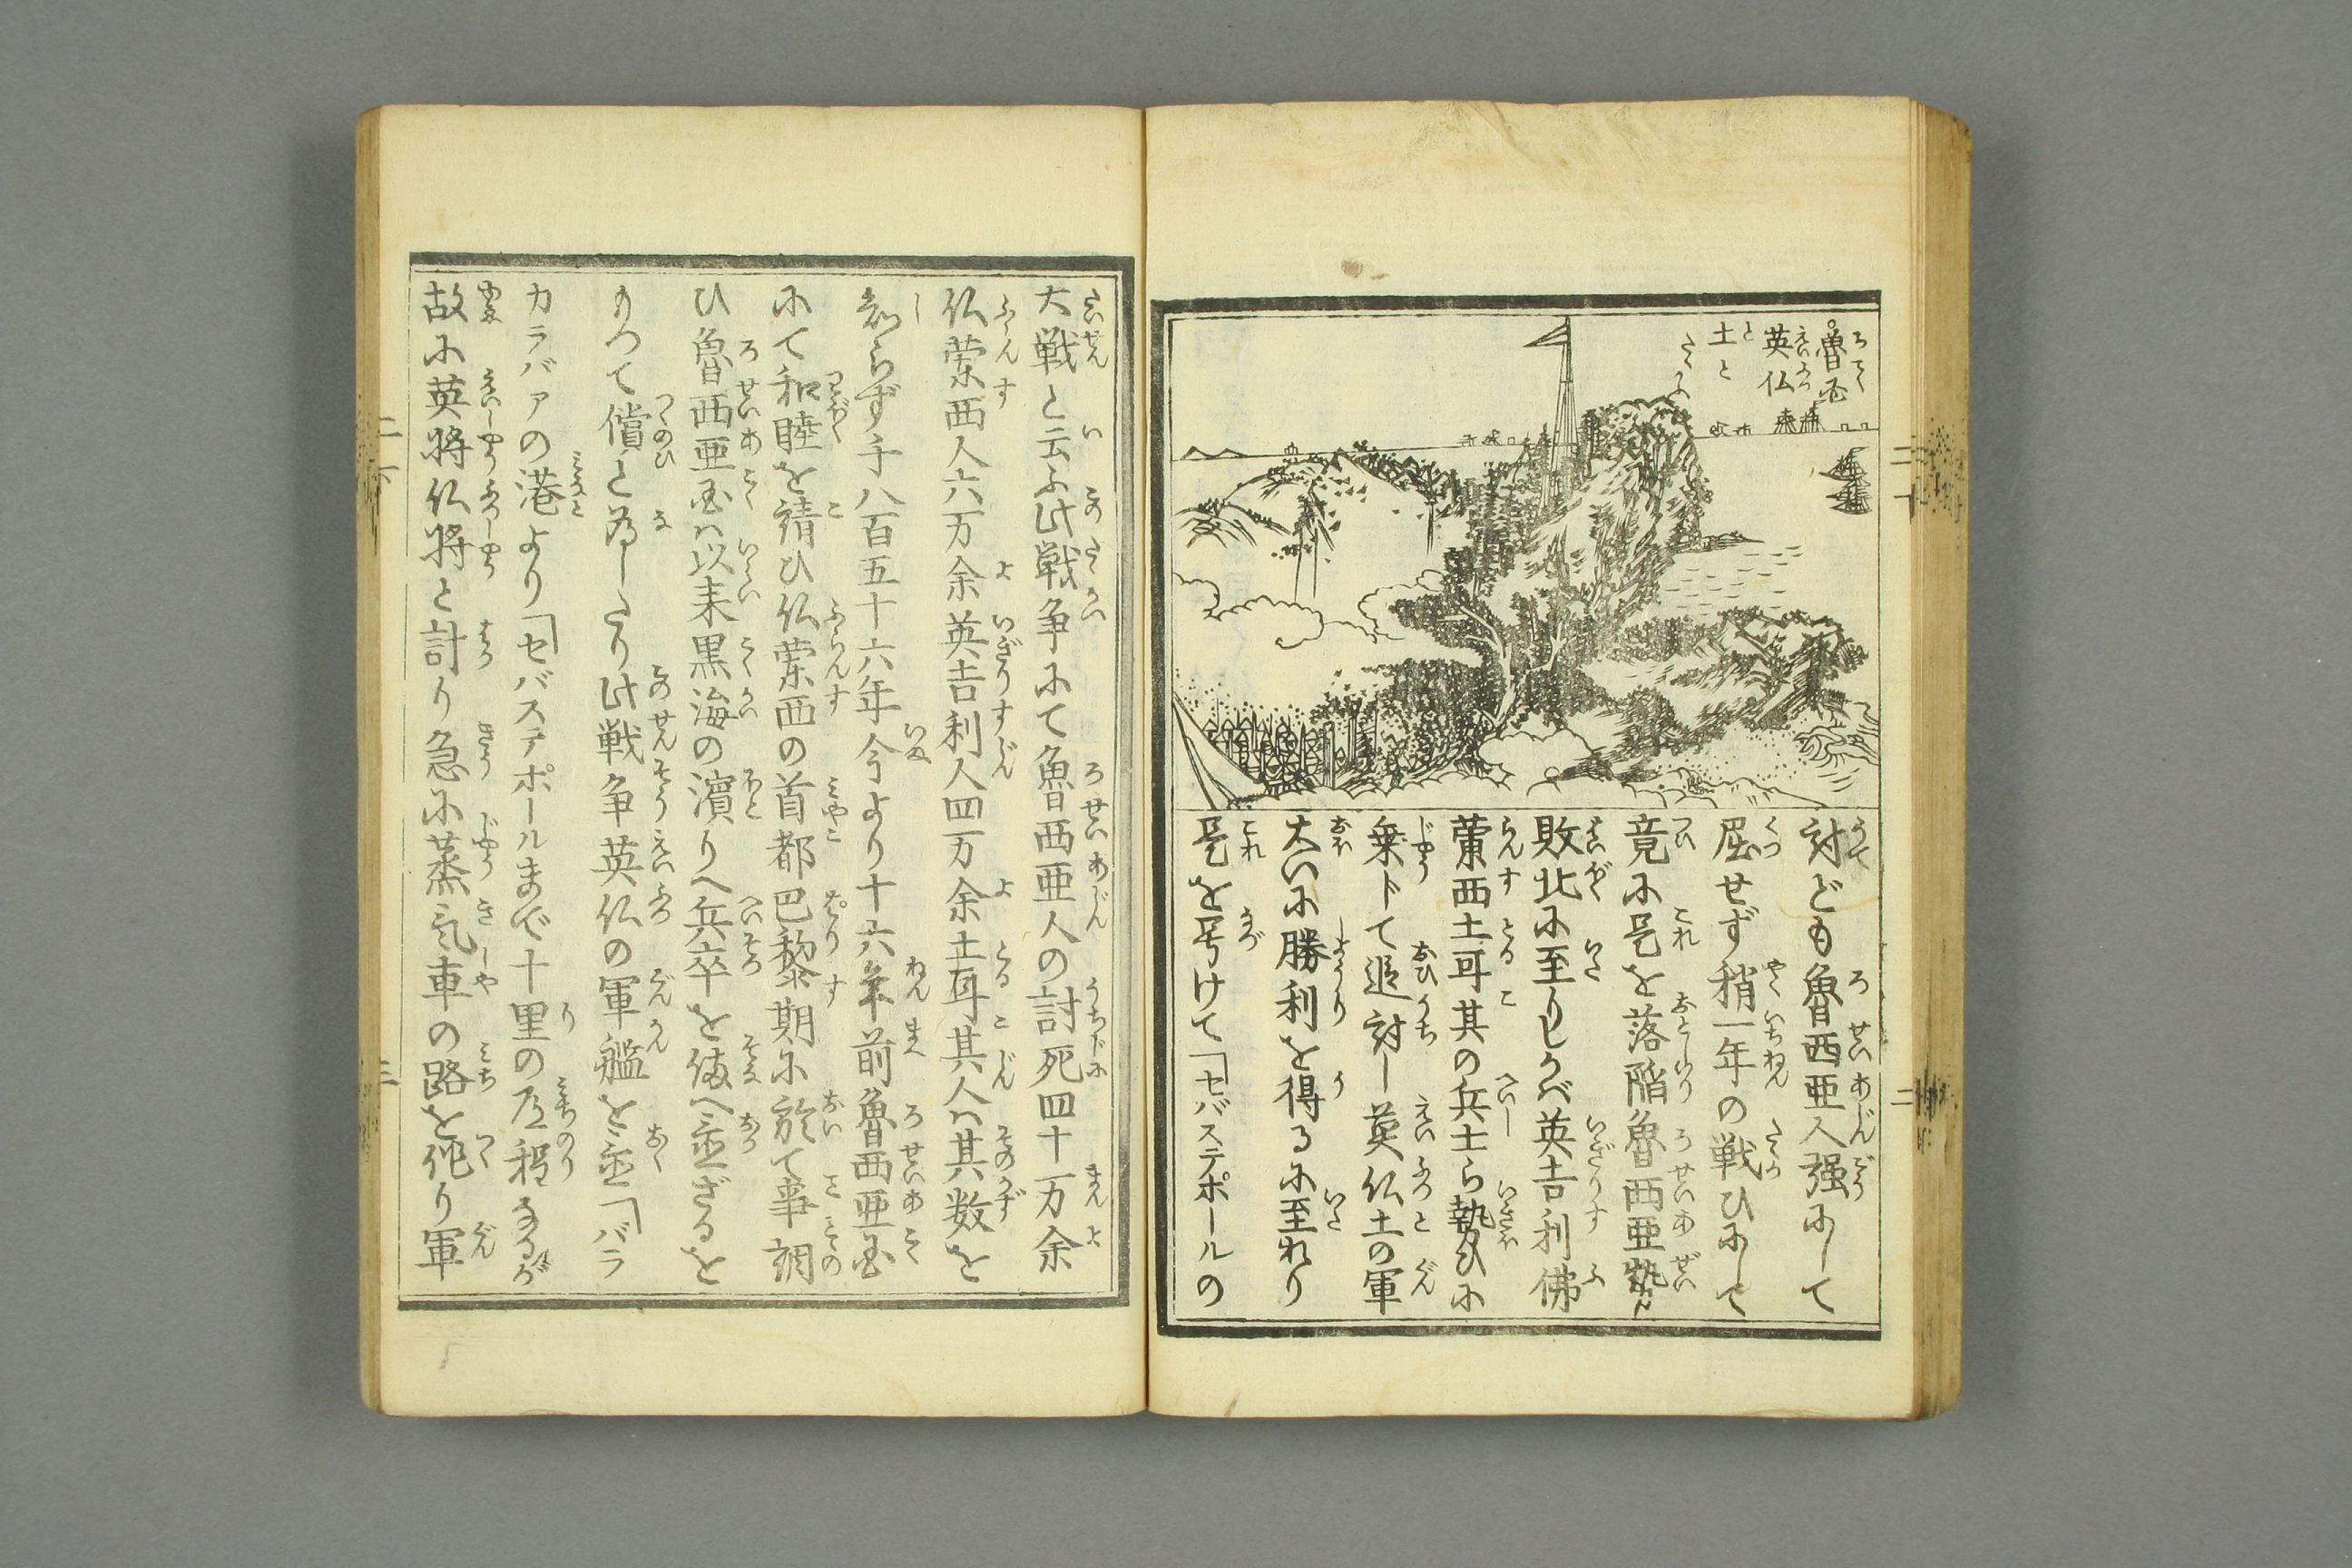 魯国
英仏
土と
たゝかふ
討ども魯西亜人强にして
屈せず稍一年の戦ひにして
竟に是を落陥魯西亜勢ハ
敗北に至りしかバ英吉利佛
蘭西土耳其の兵士ら勢ひに
乗ドて追討し英仏土の軍
大いに勝利を得るに至れり
是を号けて「セバステポールの
大戦と云ふ此戦争にて魯西亜人の討死四十万余
仏蘭西人六万余英吉利人四万余土耳其人ハ其数を
知らず千八百五十六年今より十六年前魯西亜国
にて和睦を請ひ仏蘭西の首都巴黎期に於て事調
ひ魯西亜国ハ以来黒海の濱りへ兵卒を備へ置ざるを
もつて償と為したり此戦争英仏の軍艦を置「バラ
カラバァの港より「セバステポールまで十里の道程なるが
故に英将仏将と計り急に蒸気車の路を作り軍